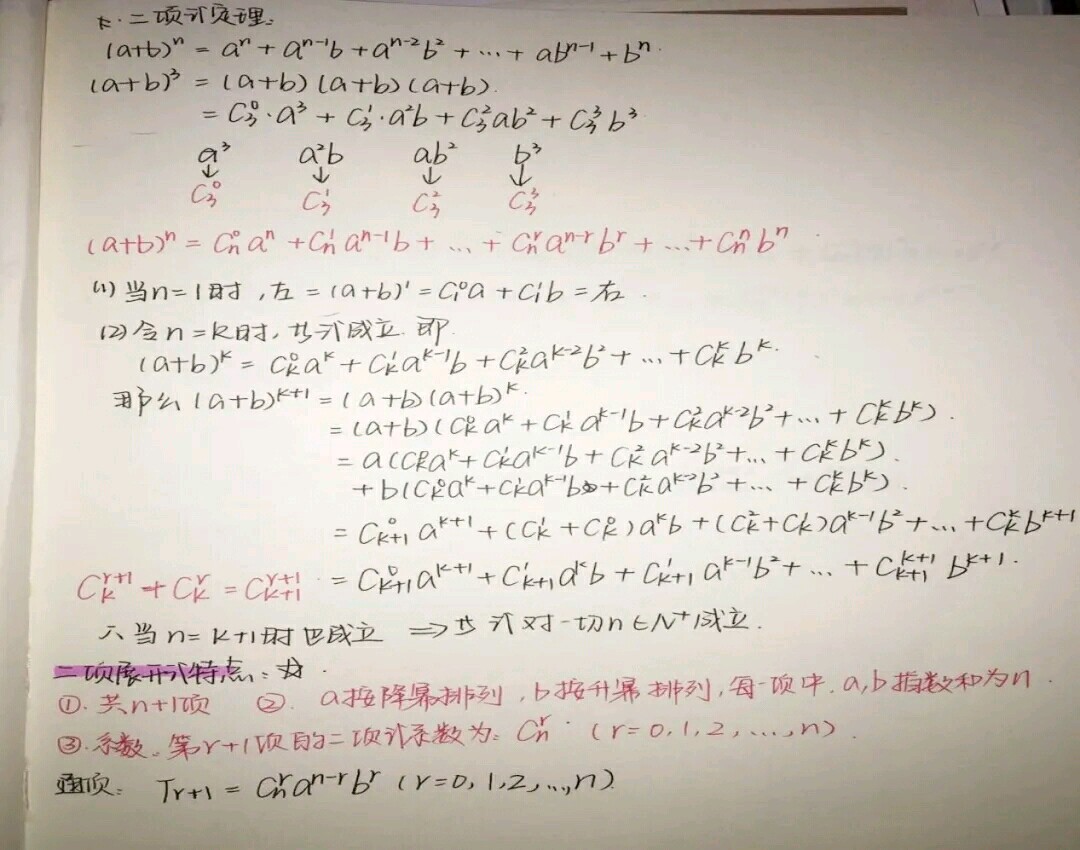 卡.二项式定理:
(a+b)ⁿ = aⁿ + aⁿ⁻¹b + aⁿ⁻²b² + … + abⁿ⁻¹ + bⁿ
(a+b)³ = (a+b)(a+b)(a+b).
= C₃⁰·a³ + C₃¹·a²b + C₃²ab² + C₃³b³
a³ a²b ab² b³
↓ ↓ ↓ ↓
C₃⁰ C₃¹ C₃² C₃³
(a+b)ⁿ = Cₙ⁰aⁿ + Cₙ¹aⁿ⁻¹b + … + Cₙʳaⁿ⁻ʳbʳ + … + Cₙⁿbⁿ
(1) 当n=1时,左=(a+b)¹=C₁⁰a+C₁¹b=右.
(2) 令n=k时,此式成立.即
(a+b)ᵏ = Cₖ⁰aᵏ + Cₖ¹aᵏ⁻¹b + Cₖ²aᵏ⁻²b² + … + Cₖᵏbᵏ.
那么(a+b)ᵏ⁺¹ = (a+b)(a+b)ᵏ.
= (a+b)(Cₖ⁰aᵏ + Cₖ¹aᵏ⁻¹b + Cₖ²aᵏ⁻²b² + … + Cₖᵏbᵏ).
= a(Cₖ⁰aᵏ + Cₖ¹aᵏ⁻¹b + Cₖ²aᵏ⁻²b² + … + Cₖᵏbᵏ).
+ b(Cₖ⁰aᵏ + Cₖ¹aᵏ⁻¹b + Cₖ²aᵏ⁻²b² + … + Cₖᵏbᵏ).
= Cₖ₊₁⁰aᵏ⁺¹ + (Cₖ¹+Cₖ⁰)aᵏb + (Cₖ²+Cₖ¹)aᵏ⁻¹b² + … + Cₖᵏbᵏ⁺¹
Cₖʳ⁺¹ + Cₖʳ = Cₖ₊₁ʳ⁺¹ = Cₖ₊₁⁰aᵏ⁺¹ + Cₖ₊₁¹aᵏb + Cₖ₊₁¹aᵏ⁻¹b² + … + Cₖ₊₁ᵏ⁺¹bᵏ⁺¹.
∴当n=k+1时也成立 ⇒ 此式对一切n∈N⁺成立.
二项展开式特点:☆.
①.共n+1项 ②. a按降幂排列,b按升幂排列,每一项中.a,b指数和为n.
③.系数.第r+1项的二项式系数为:Cₙʳ. (r=0,1,2,…,n).
通项: Tᵣ₊₁ = Cₙʳaⁿ⁻ʳbʳ (r=0,1,2,…,n)